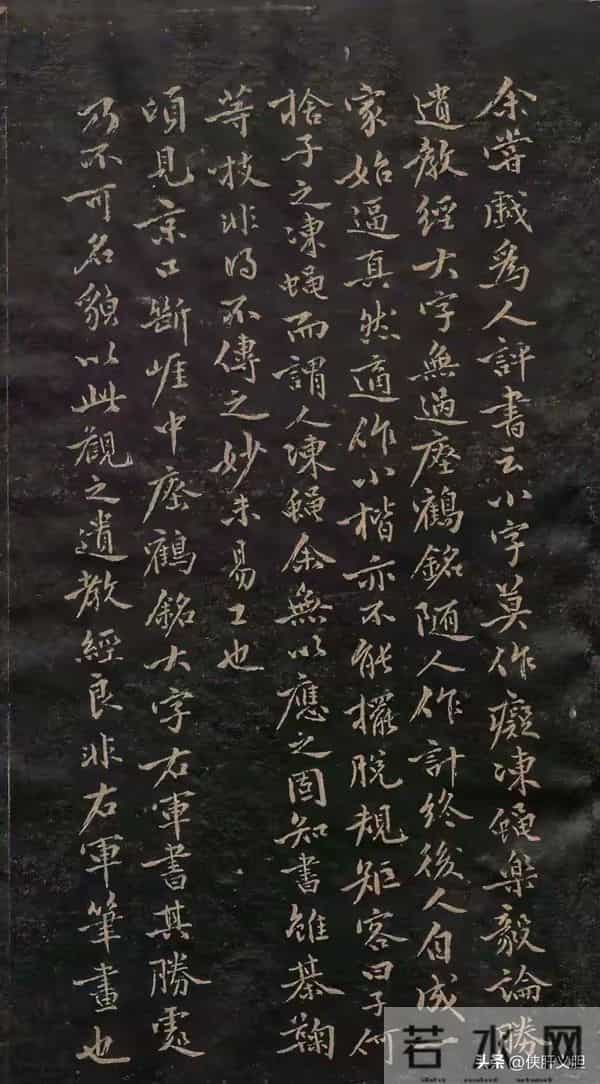 余嘗戲爲人評書云小字莫作癡凍蠅樂毅論勝
遺教經大字無過瘞鶴銘隨人作計終後人自成一
家始逼真然適作小楷亦不能擺脫規矩客曰子何
捨子之凍蠅而謂人凍蠅余無以應之固知書雖棊鞠
等技非得不傳之妙未易工也
頃見京口斷崖中瘞鶴銘大字右軍書其勝處
乃不可名貌以此觀之遺教經良非右軍筆畫也
若水网
头条 @侠肝义胆